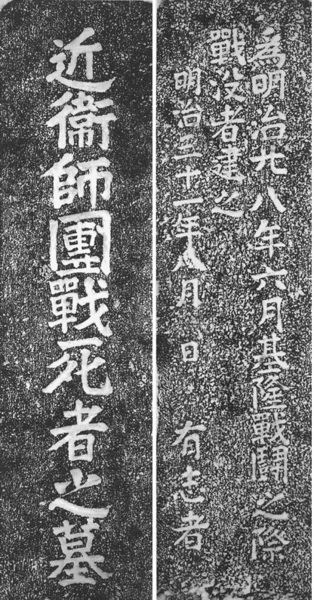 近衞師團戰死者之墓
為明治廿八年六月基隆戰鬪之際
戰没者建之
明治三十一年八月 日 有志者